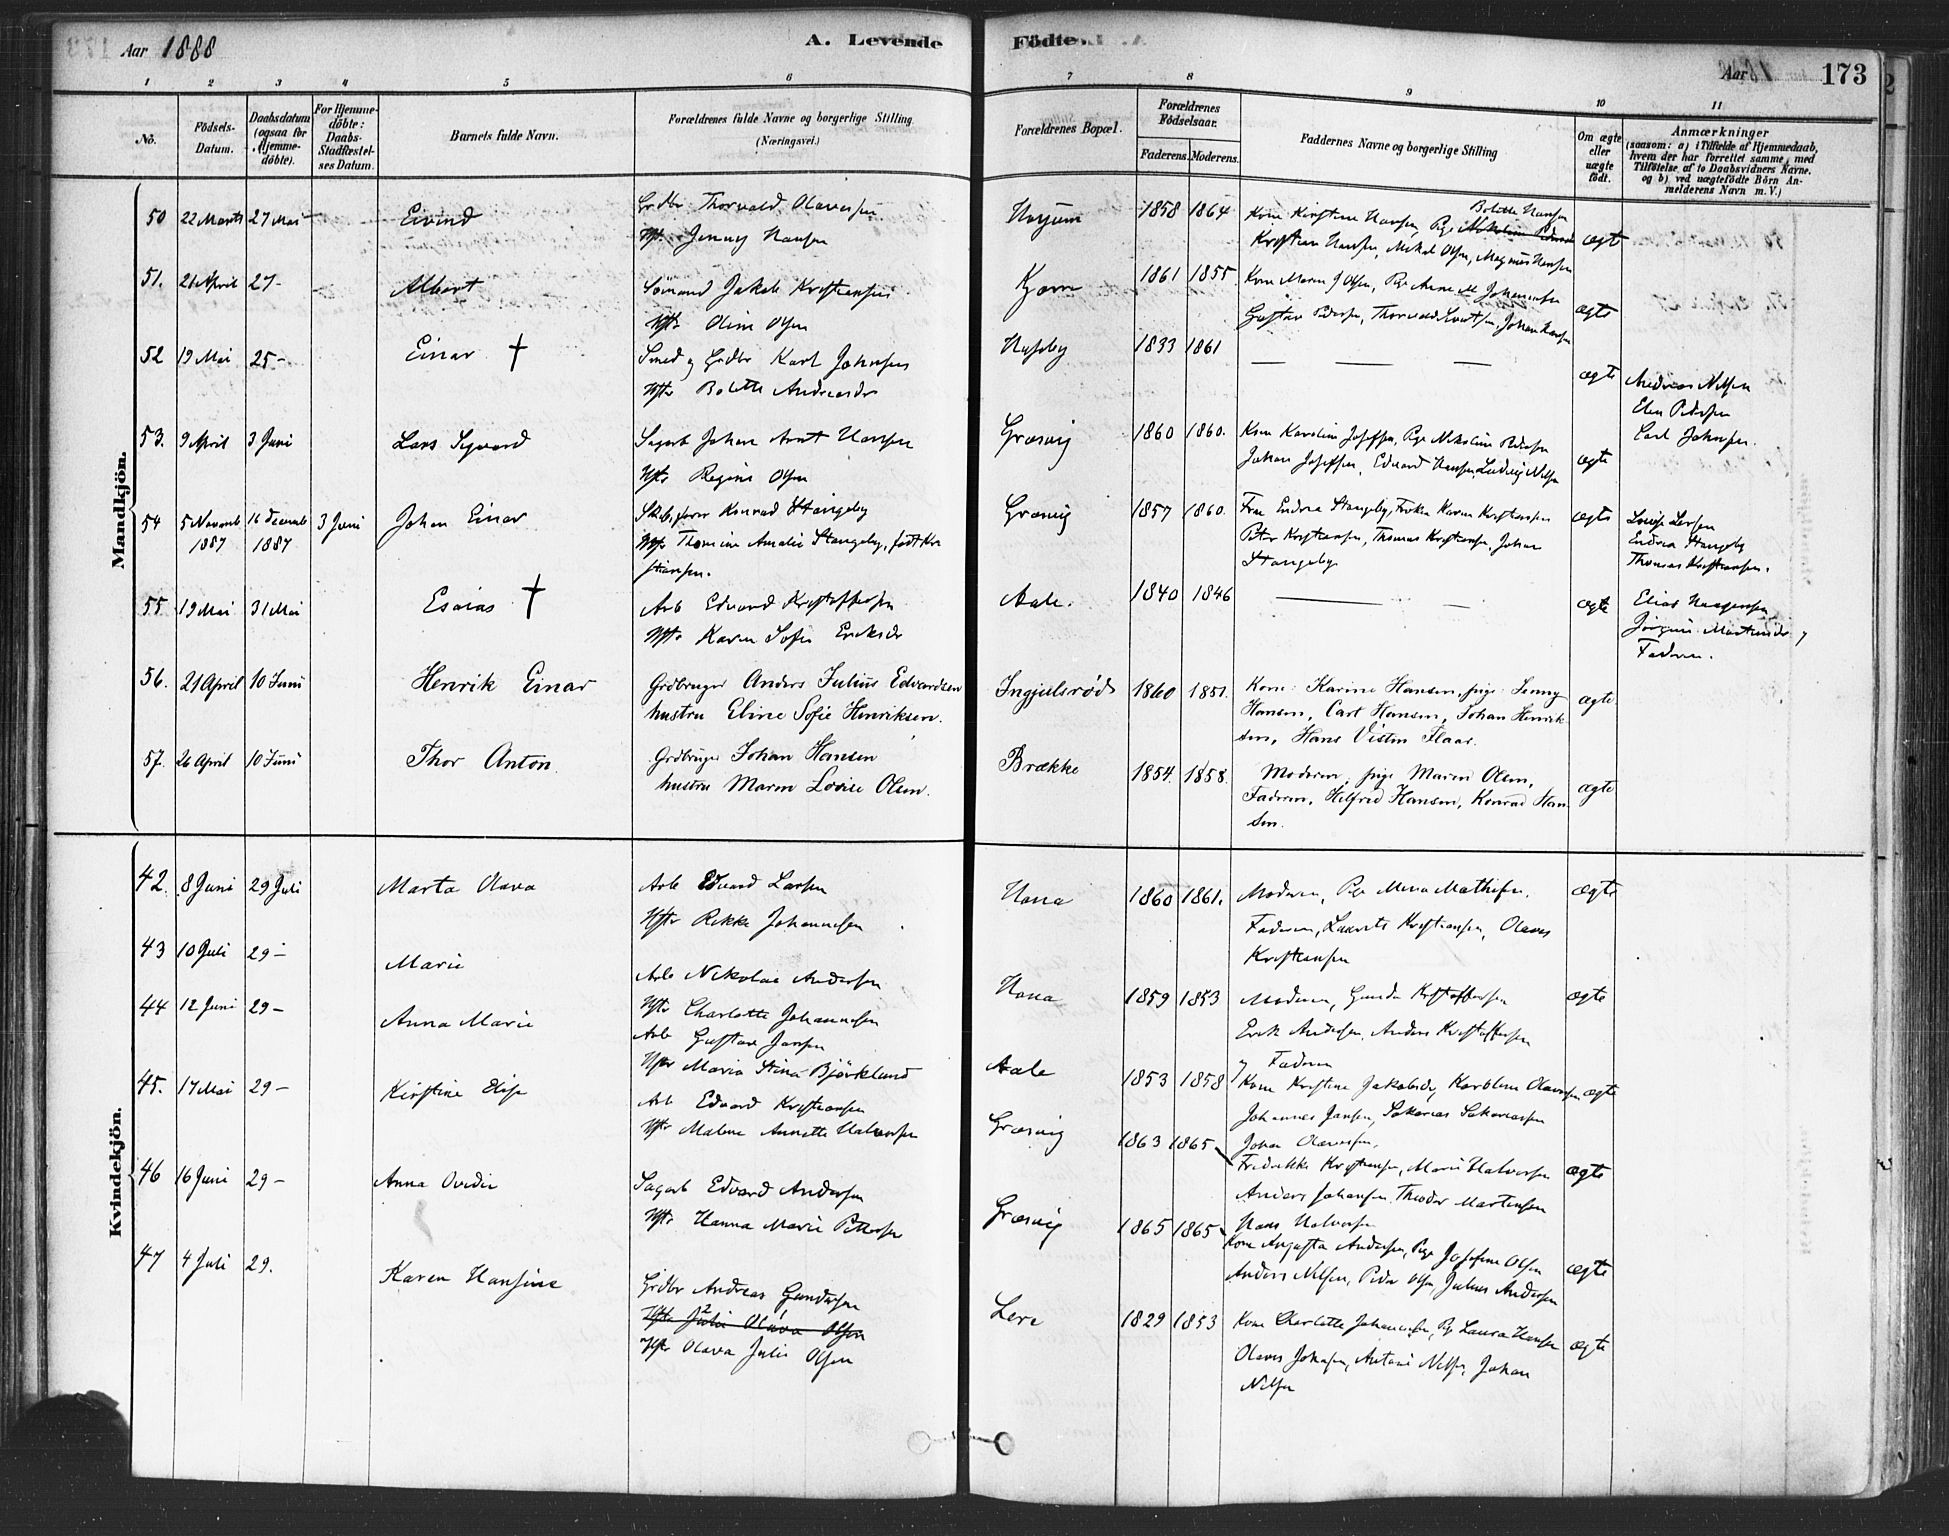 Aar 1888
A. Levende Födte.
Aar 173
1 2 3 4 5 6 7 8 9 10 11
No.
Födsels-Datum.
Daabsdatum (ogsaa for Hjemme-döbte).
For Hjemme-döbte: Daabs-Stadfæstel-ses Datum.
Barnets fulde Navn.
Forældrenes fulde Navne og borgerlige Stilling (Næringsvei.)
Forældrenes Bopæl.
Forældrenes Födselsaar.
Faderens. Moderens.
Faddernes Navne og borgerlige Stilling
Om ægte eller uægte födt.
Anmærkninger (saasom: a) i Tilfælde af Hjemmedaab, hvem der har forrettet samme, med Tilföielse af to Daabsvidners Navne, og b) ved uægtefödte Börn An-melderens Navn m. V.)
Mandkjön.
50 22 Marts 27 Mai Eivind Grdbr Thorvald Olavesen
Hst. Jenny Hansen
1858 1864 Kone Kirstine Hansen, Pige Bolette Hansen
Kristian Hansen, Mikal Olsen, Magnus Hansen
ægte
51. 21 April 27 - Albert Sömand Jakob Kristiansen
Hstr Oline Olsen
Kjærn 1861 1855 Kone Maren J Olsen, Pige Anne M Johannesen
Gustav Pedersen, Johan Hansen
ægte
52 19 Mai 25 - Einar † Smed og Grdbr Karl Johnsen
Hstr Bolette Andreasdr
Huseby 1833 1861 ægte
Andreas Nilsen
Elen Pedersen
Carl Johnsen.
53. 9 April 3 Juni Lars Sigvard Sagarb Johan Arnt Hansen
Hstr Regine Olsen
Græsvig 1860 1860. Kone Karoline Josefsen, Pige Nikoline Pedersen
Johan Josefsen, Edvard Hansen, Ludvig Nilsen
ægte
54 5 Novemb 1887 16 Decemb 1887 3 Juni Johan Einar Skibsförer Konrad Stangeby
Hstr Thomine Amalie Stangeby, födt Kri
stiansen.
Græsvig 1857 1860. Frue Endrea Stangeby, Frøken Karen Kristiansen
Peter Kristiansen, Thomas Kristiansen, Johan
Stangeby
ægte
Lovise Larsen
Endrea Stangeby
Thomas Kristiansen.
55 19 Mai 31 Mai Esaias † Arb Edvard Kristoffersen
Hstr Karen Sofie Eriksdr
Aale. 1840 1846 ægte
Elias Haagensen
Jörgine Martinsdr og
Faderen.
56. 21 April 10 Juni Henrik Einar Grdbruger Anders Julius Edvardsen
hustru Eline Sofie Henriksen.
Ingjulsröd 1860 1851. Kone: Karine Hansen, pige: Jenny
Hansen, Carl Hansen, Johan Henrik
sen, Hans Visten Flaar.
ægte
57. 26 April 10 Juni Thor Anton. Grdbruger Johan Hansen
hustru Maren Lovise Olsen.
Brække 1854. 1858. Moderen, pige Maren Olsen,
Faderen, Hilfred Hansen, Konrad Han
sen.
ægte
Kvindekjön.
42. 8 Juni 29 Juli Marta Olava Arb Edvard Larsen
Hstr Rikke Johannesen
Hona 1860 1861. Moderen, Pige Mina Mathisen,
Faderen, Laurits Kristiansen, Olaves
Kristiansen
ægte
43 10 Juli 29 - Marie Arb Nikolai Andersen
Hstr Charlotte Johannesen
Hona 1859 1853 Moderen, Gunda Kristoffersen
Erik Andersen, Anders Kristoffersen
og Faderen
ægte
44 12 Juni 29 - Anna Marie Arb Gustav Jansen
Hstr Maria Stina Björklund
Aale 1853 1858 Kone Kristine Jakobsdr, Karoline Olavesen
Johannes Jansen, Sakarias Sakariassen
Johan Olavesen.
ægte
45. 17 Mai 29 - Kirstine Elise Arb Edvard Kristiansen
Hstr Malene Annette Halvorsen
Græsvig 1863 1865 Fredrikke Kristiansen, Marie Halvorsen
Anders Johansen, Theodor Martinsen
Hans Halvorsen
ægte
46 16 Juni 29 - Anna Ovidie Sagarb Edvard Andersen
Hstr Hanna Marie Pettersen
Græsvig 1865 1865 Kone Augusta Andersen, Pige Josefine Olsen
Anders Nilsen, Peder Olsen, Julius Andersen
ægte
47 4 Juli 29. Karen Hansine Grdbr Andreas Gundersen
Hstr Julie Olava Olsen
Hstr Olava Julie Olsen
Lere 1829 1853 Kone Charlotte Johannesen, Pige Laura Hansen
Olaves Johnsen, Anton Nilsen, Johan
Nilsen
ægte